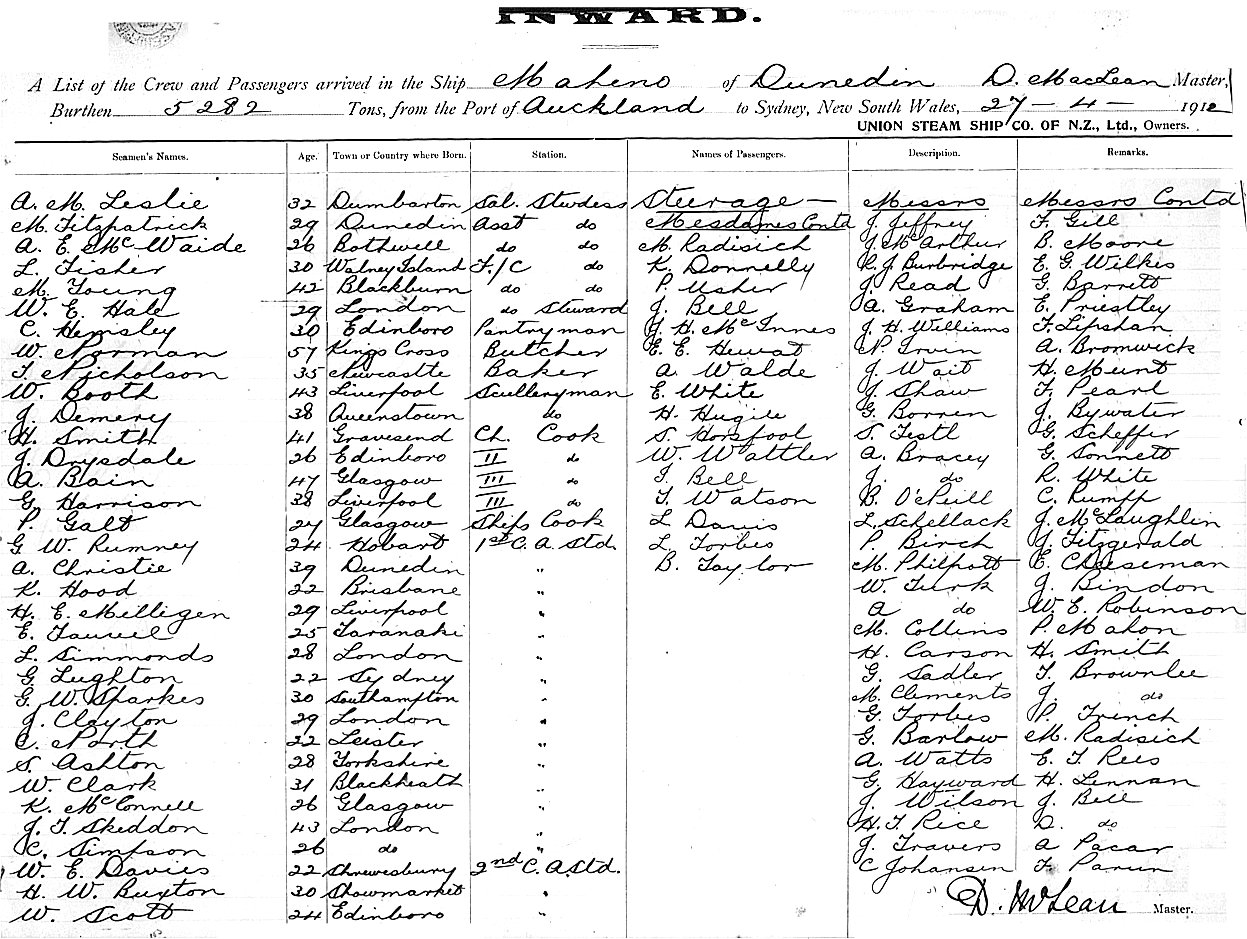 INWARD.
A List of the Crew and Passengers arrived in the Ship Maheno of Dunedin D. MacLean Master,
Burthen 5282 Tons, from the Port of Auckland to Sydney, New South Wales, 27 - 4 - 191
UNION STEAM SHIP CO. OF N.Z., Ltd., Owners.
Seamen's Names. Age. Town or Country where Born. Station. Names of Passengers. Description. Remarks.
A. M. Leslie 32 Dumbarton Sal. Stewdess Steerage — Messrs Messrs Contd
M. Fitzpatrick 29 Dunedin Asst do Mesdames Contd J. Jeffrey F. Gill
A. E. McWaide 26 Bothwell do do M. Radisich J. McArthur B. Moore
L. Fisher 30 Walney Island F/C do K. Donnelly R. J. Burbridge E. G. Wilkes
M. Young 42 Blackburn do do P. Usher J. Read G. Barrett
W. E. Hale 29 London do Steward J. Bell A. Graham E. Priestley
C. Hemsley 30 Edinboro Pantryman J. H. McInnes J. H. Williams F. Lipshan
W. Norman 57 Kings Cross Butcher E. E. Hewat N. Irvin A. Bromwick
T. Nicholson 35 Newcastle Baker A. Walde J. Wait H. Munt
W. Booth 43 Liverpool Sculleryman E. White J. Shaw F. Pearl
J. Demery 38 Queenstown do H. Hugill G. Borren J. Bywater
H. Smith 41 Gravesend Ch. Cook S. Horsfool S. Testl G. Scheffer
J. Drysdale 26 Edinboro II do W. Wattler A. Bracey G. Sonnett
A. Bain 47 Glasgow III do F. Bell J. do R. White
G. Harrison 38 Liverpool III do T. Watson B. O'Neill C. Rumpf
P. Galt 24 Glasgow Ships Cook L. Davis L. Schellack J. McLaughlin
G. W. Rumney 24 Hobart 1st C. A. Std. L. Forbes P. Birch J. Fitzgerald
A. Christie 39 Dunedin " B. Taylor M. Philpott E. Cheeseman
K. Hood 22 Brisbane " W. Turk J. Bindon
H. E. Milligen 29 Liverpool " A do W. E. Robinson
E. 25 Taranaki " M. Collins P. Mahon
L. Simmonds 28 London " H. Carson H. Smith
G. Lughton 22 Sydney " G. Sadler T. Brownlee
G. W. Sparkes 30 Southampton " M. Clements J. do
J. Clayton 29 London " G. Forbes P. French
C. North 22 Leister " G. Barlow M. Radisich
S. Ashton 28 Yorkshire " A. Watts E. T. Rees
W. Clark 31 Blackheath " G. Hayward H. Lennan
K. McConnell 26 Glasgow " J. Wilson J. Bell
J. T. Skeddon 43 London " H. T. Rice D. do
C. Simpson 26 do " J. Travers A Pacar
W. E. Davies 22 Shrewesbury 2nd C. A. Std. C Johansen F. Parun
H. W. Buxton 30 Stowmarket "
W. Scott 24 Edinboro " D. McLean Master.